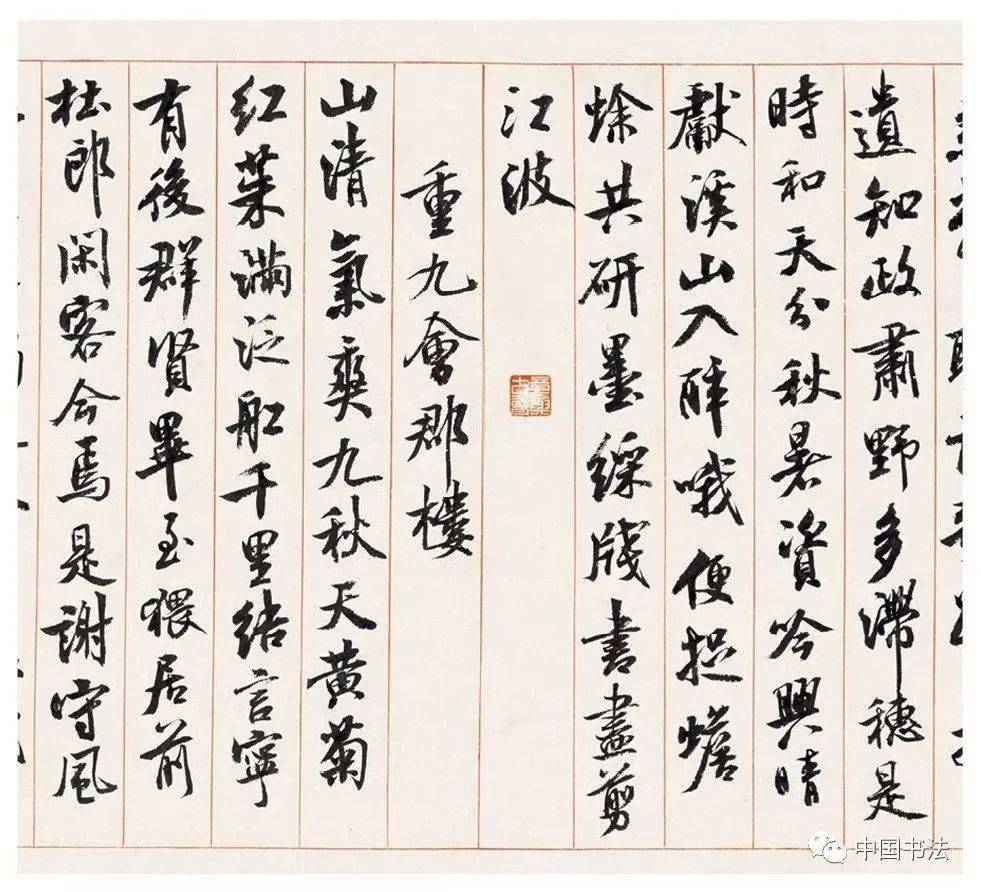 遺知政肅野多滯穗是
時和天分秋暑資吟興晴
獻溪山入醉哦便捉蟾
蜍共研墨綵牋書盡剪
江波
重九會郡樓
山清氣爽九秋天黃菊
紅茱滿泛船千里結言寧
有後群賢畢至猥居前
杜郎閑客今焉是謝守風
中国书法